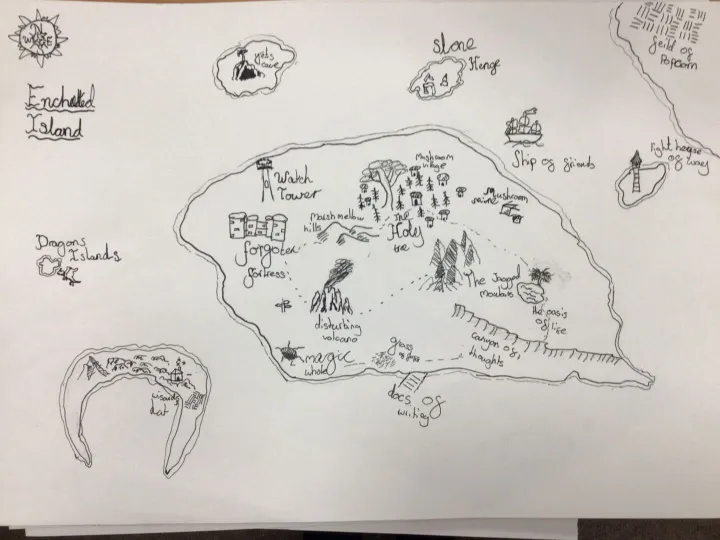 N
W E
Enchated
Island
yets
cave
stone
Henge
feild of
Popcorn
Ship of friends
light house
of way
Watch
Tower
Mushroom
village
Mushroom
Marshmellow
hills
The
Holy
tree
forgoten
fortress
Dragons
Islands
The Jagged
the oasis
of life
disturbing
volcano
canyon of
thoughts
magic
whole
grass
docs of
writing
hut